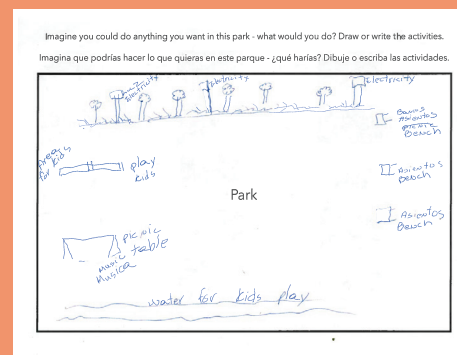 Imagine you could do anything you want in this park - what would you do? Draw or write the activities.
Imagina que podrías hacer lo que quieras en este parque - ¿qué harías? Dibuje o escriba las actividades.
Electricity
Electricity
Electricity
Asientos
picnic
Bench
Areas
for Kid
play
kids
Asientos
Bench
Park
Asientos
Bench
picnic
table
music
Musica
water for kids play